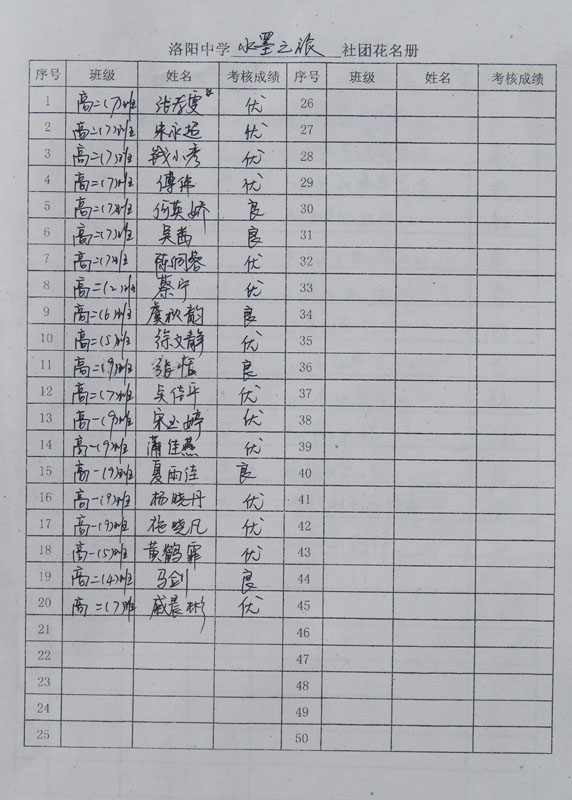 洛阳中学 水墨之旅 社团花名册
序号 班级 姓名 考核成绩 序号 班级 姓名 考核成绩
1 高二(7)班 优 26
2 高二(7)班 朱永超 优 27
3 高二(7)班 钱小秀 优 28
4 高二(7)班 傅伟 优 29
5 高二(7)班 何英娇 良 30
6 高二(7)班 吴茜 良 31
7 高二(7)班 陈佩蓉 优 32
8 高二(2)班 蔡宁 优 33
9 高二(6)班 虞秋韵 良 34
10 高二(5)班 徐文静 优 35
11 高二(9)班 张恬 良 36
12 高二(7)班 吴倍平 优 37
13 高一(9)班 宋玉婷 优 38
14 高一(9)班 蒲佳燕 优 39
15 高一(9)班 夏雨佳 良 40
16 高一(9)班 杨晓丹 优 41
17 高一(9)班 施晓凡 优 42
18 高一(5)班 黄鹤霏 优 43
19 高二(4)班 马剑 良 44
20 高二(7)班 戚晨彬 优 45
21 46
22 47
23 48
24 49
25 50